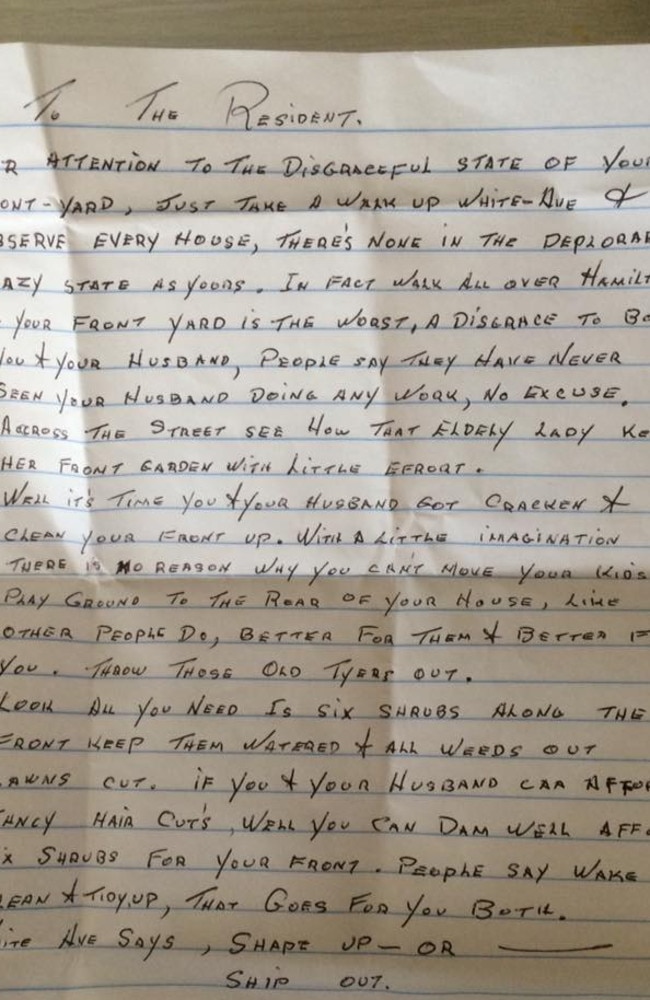 To The Resident.
R ATTENTION TO THE DISGRACEFUL STATE OF YOUR
ONT-YARD, JUST TAKE A WALK UP WHITE-AVE &
BSERVE EVERY HOUSE, THERE'S NONE IN THE DEPLORAB
AZY STATE AS YOURS. IN FACT WALK ALL OVER HAMILT
YOUR FRONT YARD IS THE WORST, A DISGRACE TO BO
YOU & YOUR HUSBAND, PEOPLE SAY THEY HAVE NEVER
SEEN YOUR HUSBAND DOING ANY WORK, NO EXCUSE.
ACCROSS THE STREET SEE HOW THAT ELDELY LADY KE
HER FRONT GARDEN WITH LITTLE EFRORT.
WELL IT'S TIME YOU & YOUR HUSBAND GOT CRACKEN &
CLEAN YOUR FRONT UP. WITH A LITTLE IMAGINATION
THERE IS NO REASON WHY YOU CAN'T MOVE YOUR KIDS
PLAY GROUND TO THE REAR OF YOUR HOUSE, LIKE
OTHER PEOPLE DO, BETTER FOR THEM & BETTER F
YOU. THROW THOSE OLD TYERS OUT.
LOOK ALL YOU NEED IS SIX SHRUBS ALONG THE
FRONT KEEP THEM WATERED & ALL WEEDS OUT
LAWNS CUT. IF YOU & YOUR HUSBAND CAA AFFOR
ANCY HAIR CUT'S, WELL YOU CAN DAM WELL AFFO
IX SHRUBS FOR YOUR FRONT. PEOPLE SAY WAKE
LEAN & TIDY,UP, THAT GOES FOR YOU BOTH.
ITE AVE SAYS, SHAPE UP - OR ———
SHIP OUT.